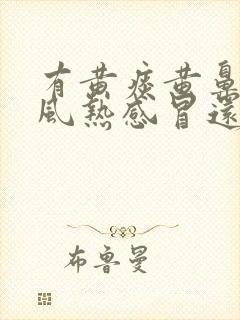 有黄痰黄鼻
风热感冒还
布鲁曼